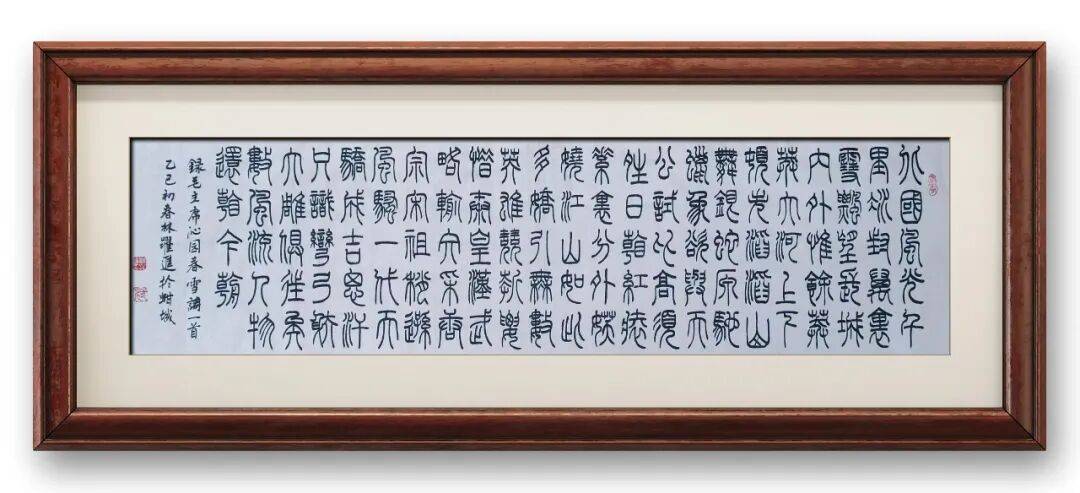 北國風光千
里冰封萬裏
雪飄望長城
內外惟餘莽
莽大河上下
頓失滔滔山
舞銀蛇原馳
蠟象欲與天
公試比高須
晴日看紅裝
素裹分外妖
嬈江山如此
多嬌引無數
英雄競折腰
惜秦皇漢武
略輸文采唐
宗宋祖稍遜
風騷一代天
驕成吉思汗
只識彎弓射
大雕俱往矣
數風流人物
還看今朝
錄毛主席沁園春雪詞一首
乙巳初春林躍進於蚶城